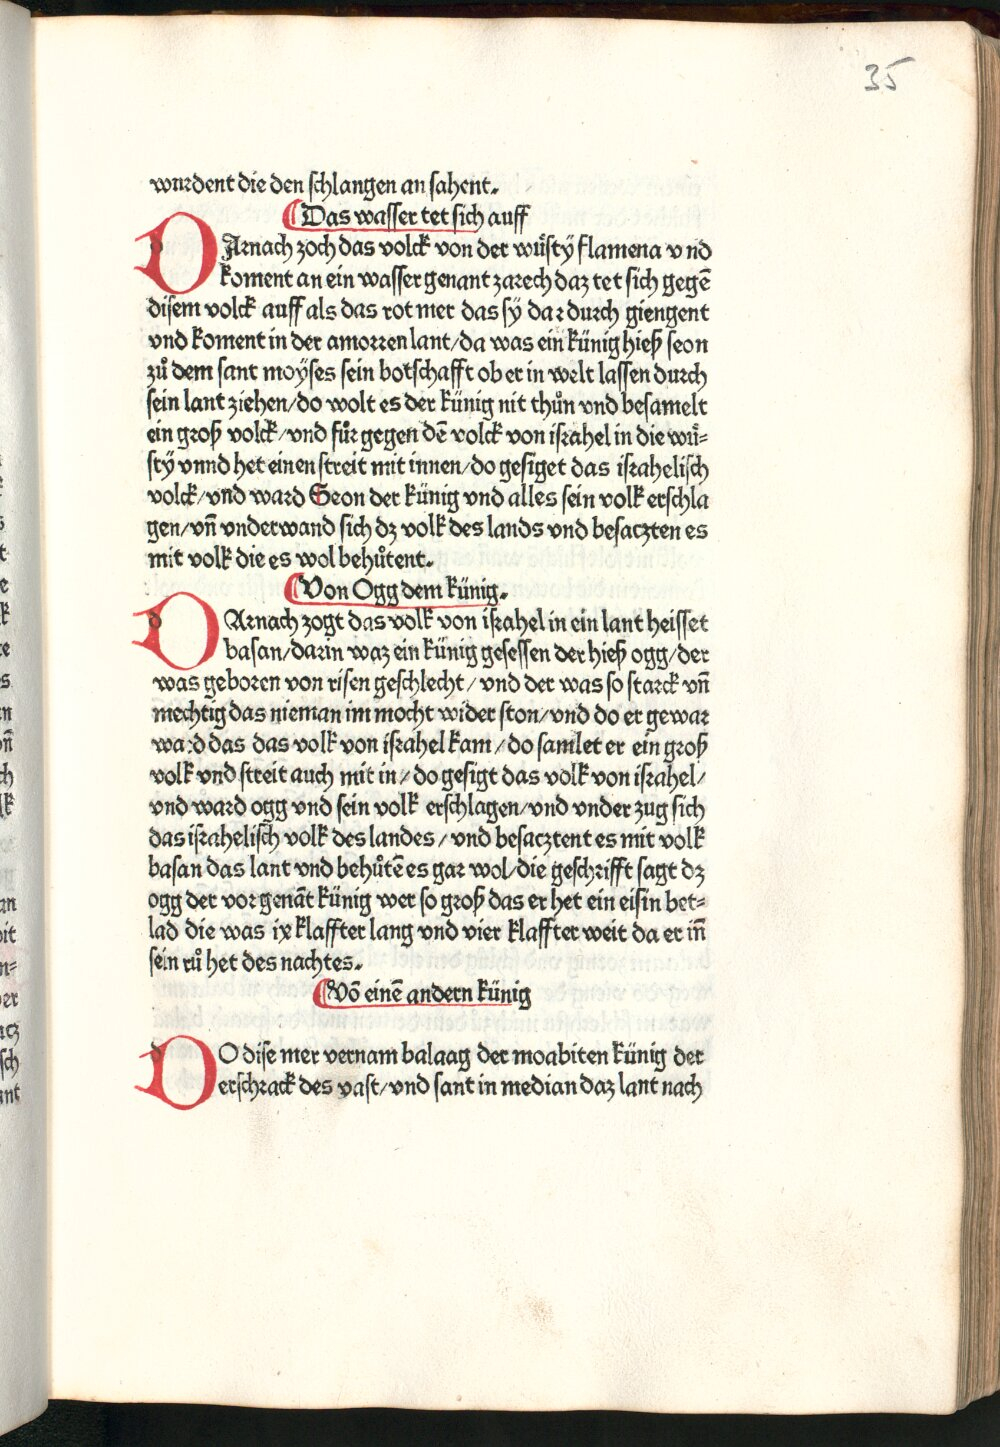 35
wurdent die den schlangen an sahent.
Das wasser tet sich auff
DArnach zoch das volck von der wuͤsty flamena v nd
koment an ein wasser genant zarech daz tet sich gegē
disem volck auff als das rot mer das sÿ dar durch giengent
vnd koment in der amorren lant/da was ein künig hieß seon
zuͦ dem sant moyses sein botschafft ob er in welt lassen durch
sein lant ziehen/do wolt es der künig nit thuͦn vnd besamelt
ein groß volck/vnd fuͦr gegen dē volck von israhel in die wuͤ=
stÿ vnnd het einen streit mit innen/do gesiget das israhelisch
volck/vnd ward Seon der künig vnd alles sein volk erschla
gen/vn̄ vnderwand sich dz volk des lands vnd besaczten es
mit volk die es wol behuͤtent.
Von Ogg dem künig.
DArnach zogt das volk von israhel in ein lant heisset
basan/darin waz ein künig gesessen der hieß ogg/der
was geboren von risen geschlecht/vnd der was so starck vn̄
mechtig das nieman im mocht wider ston/vnd do er gewar
ward das das volk von israhel kam/do samlet er ein groß
volk vnd streit auch mit in/do gesigt das volk von israhel/
vnd ward ogg vnd sein volk erschlagen/vnd vnder zug sich
das israhelisch volk des landes/vnd besacztent es mit volk
basan das lant vnd behuͤtē es gar wol/die geschrifft sagt dz
ogg der vor genāt künig wer so groß das er het ein eisin bet=
lad die was ix klaffter lang vnd vier klaffter weit da er in̄
sein ruͦ het des nachtes.
Vō einē andern künig
DO dise mer vernam balaag der moabiten künig der
erschrack des vast/vnd sant in median daz lant nach